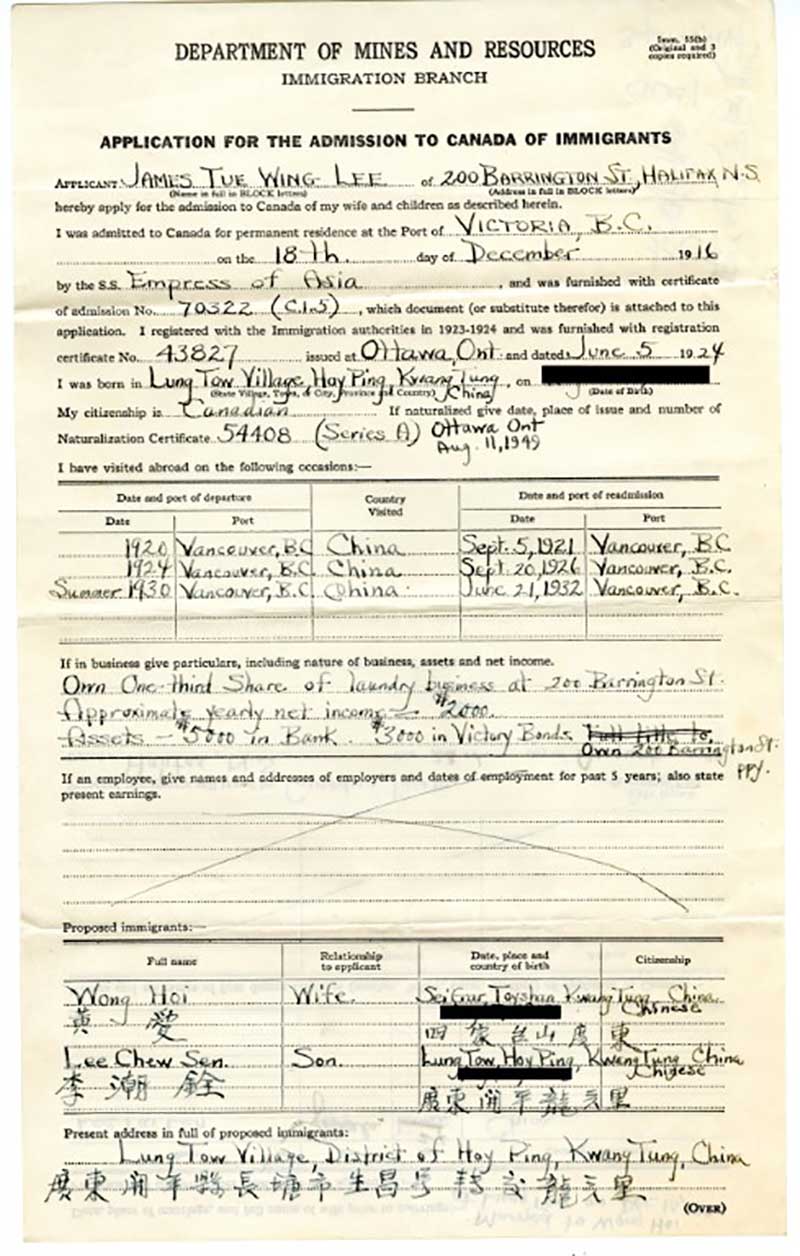 Imm. 55(b)
(Original and 3
copies required)
DEPARTMENT OF MINES AND RESOURCES
IMMIGRATION BRANCH
APPLICATION FOR THE ADMISSION TO CANADA OF IMMIGRANTS
APPLICANT JAMES TUE WING LEE of 200 BARRINGTON ST., HALIFAX N.S.
(Name in full in BLOCK letters) (Address in full in BLOCK letters)
hereby apply for the admission to Canada of my wife and children as described herein.
I was admitted to Canada for permanent residence at the Port of VICTORIA, B.C.
on the 18th. day of December 1916
by the S.S. Empress of Asia, and was furnished with certificate
of admission No. 70322 (C.I.5), which document (or substitute therefor) is attached to this
application. I registered with the Immigration authorities in 1923-1924 and was furnished with registration
certificate No. 43827 issued at Ottawa, Ont. and dated June 5 1924
I was born in Lung Tow Village, Hoy Ping, Kwang Tung, on
(State Village, Town, or City, Province and Country) China (Date of Birth)
My citizenship is Canadian If naturalized give date, place of issue and number of
Naturalization Certificate 54408 (Series A) Ottawa Ont
Aug. 11, 1949
I have visited abroad on the following occasions:—
Date and port of departure Country Visited Date and port of readmission
Date Port Date Port
1920 Vancouver, B.C China Sept. 5, 1921 Vancouver, B.C
1924 Vancouver, B.C. China Sept. 20, 1926 Vancouver, B.C.
Summer 1930 Vancouver, B.C. China. June 21, 1932 Vancouver, B.C.
If in business give particulars, including nature of business, assets and net income.
Own One-third Share of laundry business at 200 Barrington St.
Approximate yearly net income — $2000.
Assets — $5000 in Bank. $3000 in Victory Bonds. Full title to.
Own 200 Barrington St.
ppy.
If an employee, give names and addresses of employers and dates of employment for past 5 years; also state
present earnings.
Proposed immigrants:—
Full name Relationship to applicant Date, place and country of birth Citizenship
Wong Hoi Wife. Toyshan Kwang Tung China
Chinese
黃 愛 四 家 台山 廣 東
Lee Chew Sen. Son. Lung Tow, Hoy Ping, Kwang Tung China
Chinese
李 潮 銓
廣東開平龍 里
Present address in full of proposed immigrants:
Lung Tow Village, District of Hoy Ping, Kwang Tung, China
廣東開平縣長塘市生昌号轉交龍 里
(OVER)